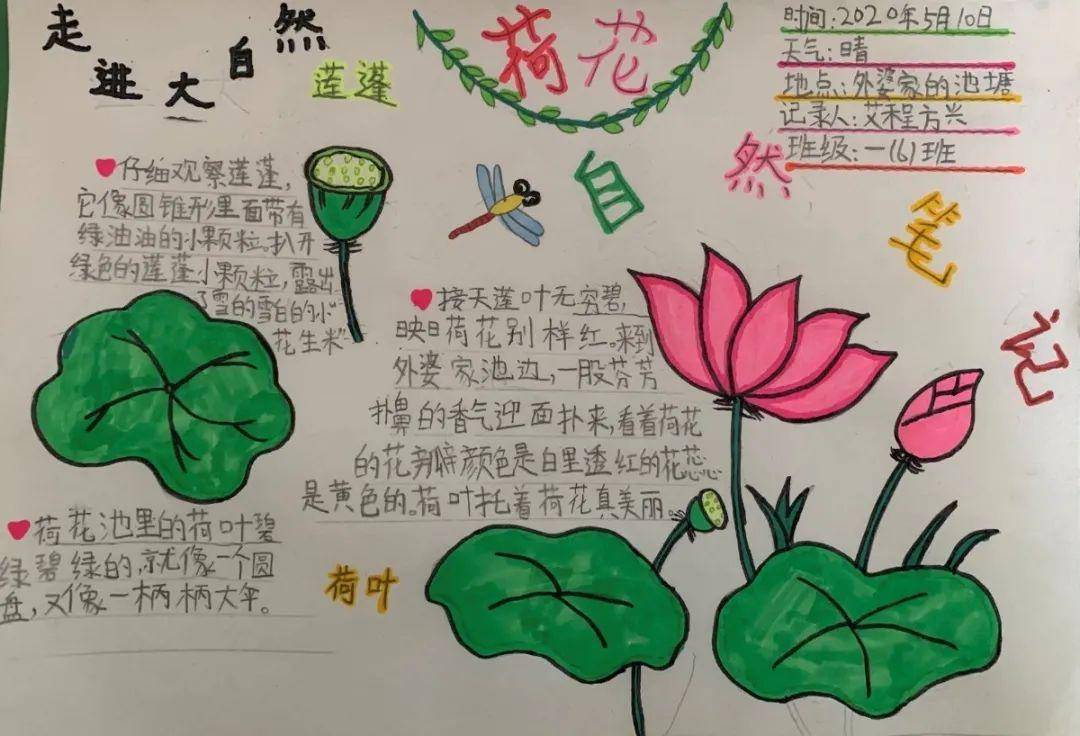 走进大自然
荷花
自然笔记
时间:2020年5月10日
天气:晴
地点:外婆家的池塘
记录人:艾程方兴
班级:一(6)班
莲蓬
仔细观察莲蓬,
它像圆锥形里面带有
绿油油的小颗粒。扒开
绿色的莲蓬小颗粒,露出
了雪的雪白的小
花生米
接天莲叶无穷碧,
映日荷花别样红。来到
外婆家池边,一股芬芳
扑鼻的香气迎面扑来,看着荷花
的花瓣颜色是白里透红的花蕊
是黄色的。荷叶托着荷花真美丽。
荷花池里的荷叶碧
绿碧绿的,就像一个圆
盘,又像一柄柄大伞。
荷叶